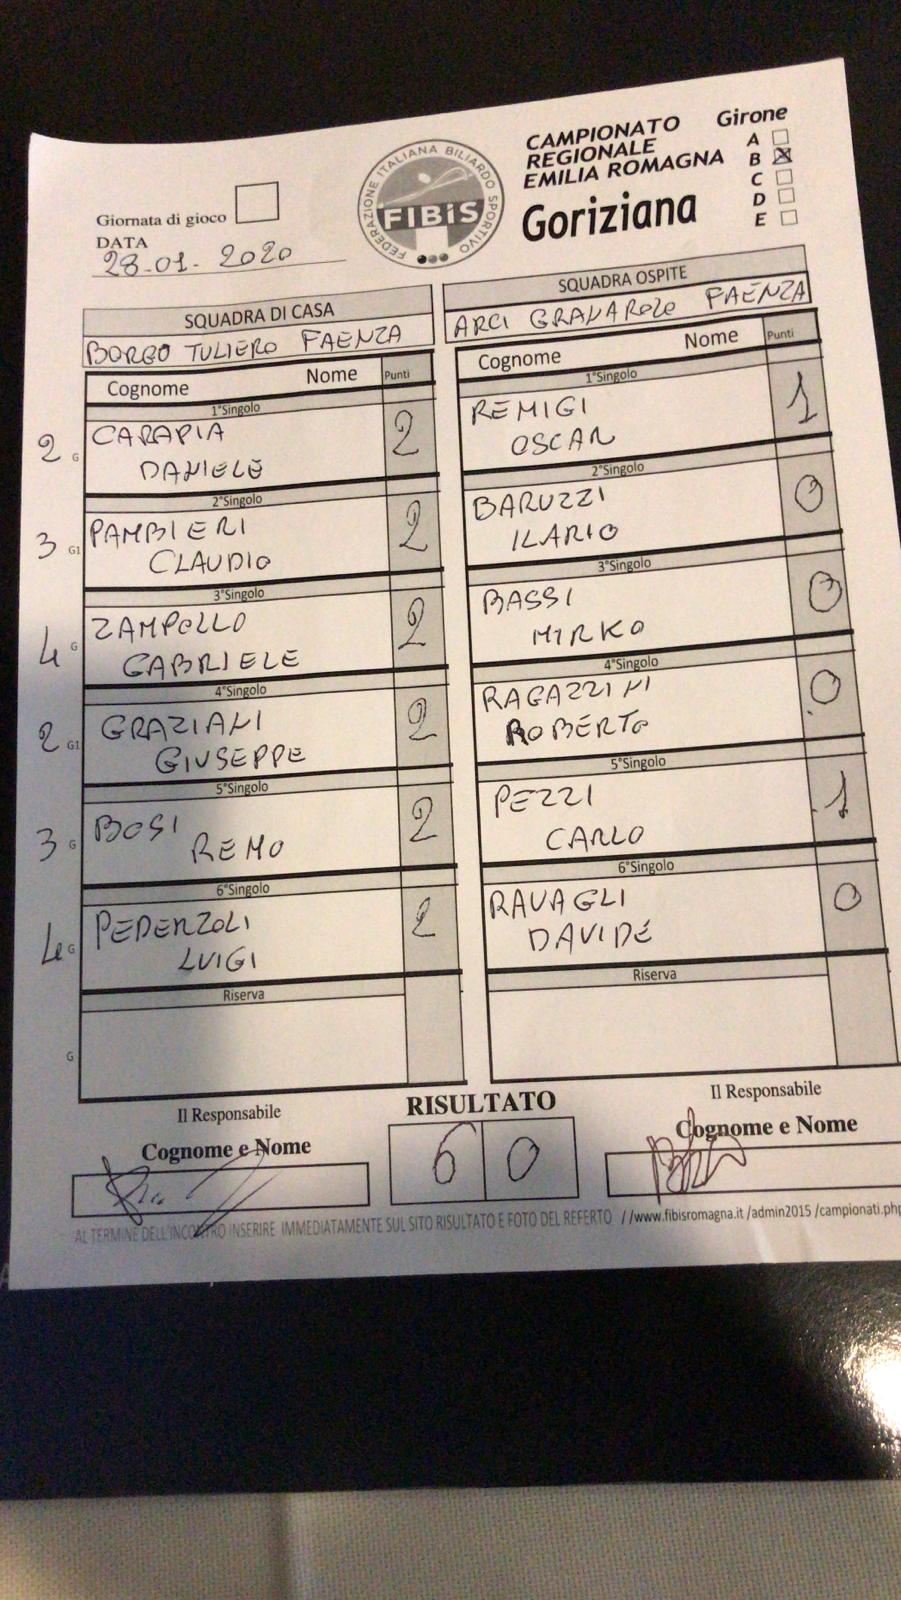 CAMPIONATO
REGIONALE
EMILIA ROMAGNA
Goriziana
Girone
A
B
C
D
E
FEDERAZIONE ITALIANA BILIARDO SPORTIVO
FIBiS
Giornata di gioco
DATA
28-01-2020
SQUADRA DI CASA
BORGO TULIERO FAENZA
Cognome Nome Punti
1°Singolo
2 G CARAPIA 2
DANIELE
2°Singolo
3 G1 PAMBIERI 2
CLAUDIO
3°Singolo
4 G ZAMPELLO 2
GABRIELE
4°Singolo
2 G1 GRAZIANI 2
GIUSEPPE
5°Singolo
3 G BOSI 2
REMO
6°Singolo
4 G PEDERZOLI 2
LUIGI
Riserva
G
SQUADRA OSPITE
ARCI GRANAROLO FAENZA
Cognome Nome Punti
1°Singolo
REMIGI 1
OSCAR
2°Singolo
BARUZZI 0
ILARIO
3°Singolo
BASSI 0
MIRKO
4°Singolo
RAGAZZINI 0
ROBERTO
5°Singolo
PEZZI 1
CARLO
6°Singolo
RAVAGLI 0
DAVIDE
Riserva
Il Responsabile
Cognome e Nome
RISULTATO
6 0
Il Responsabile
Cognome e Nome
AL TERMINE DELL'INCONTRO INSERIRE IMMEDIATAMENTE SUL SITO RISULTATO E FOTO DEL REFERTO //www.fibisromagna.it /admin2015 /campionati.php